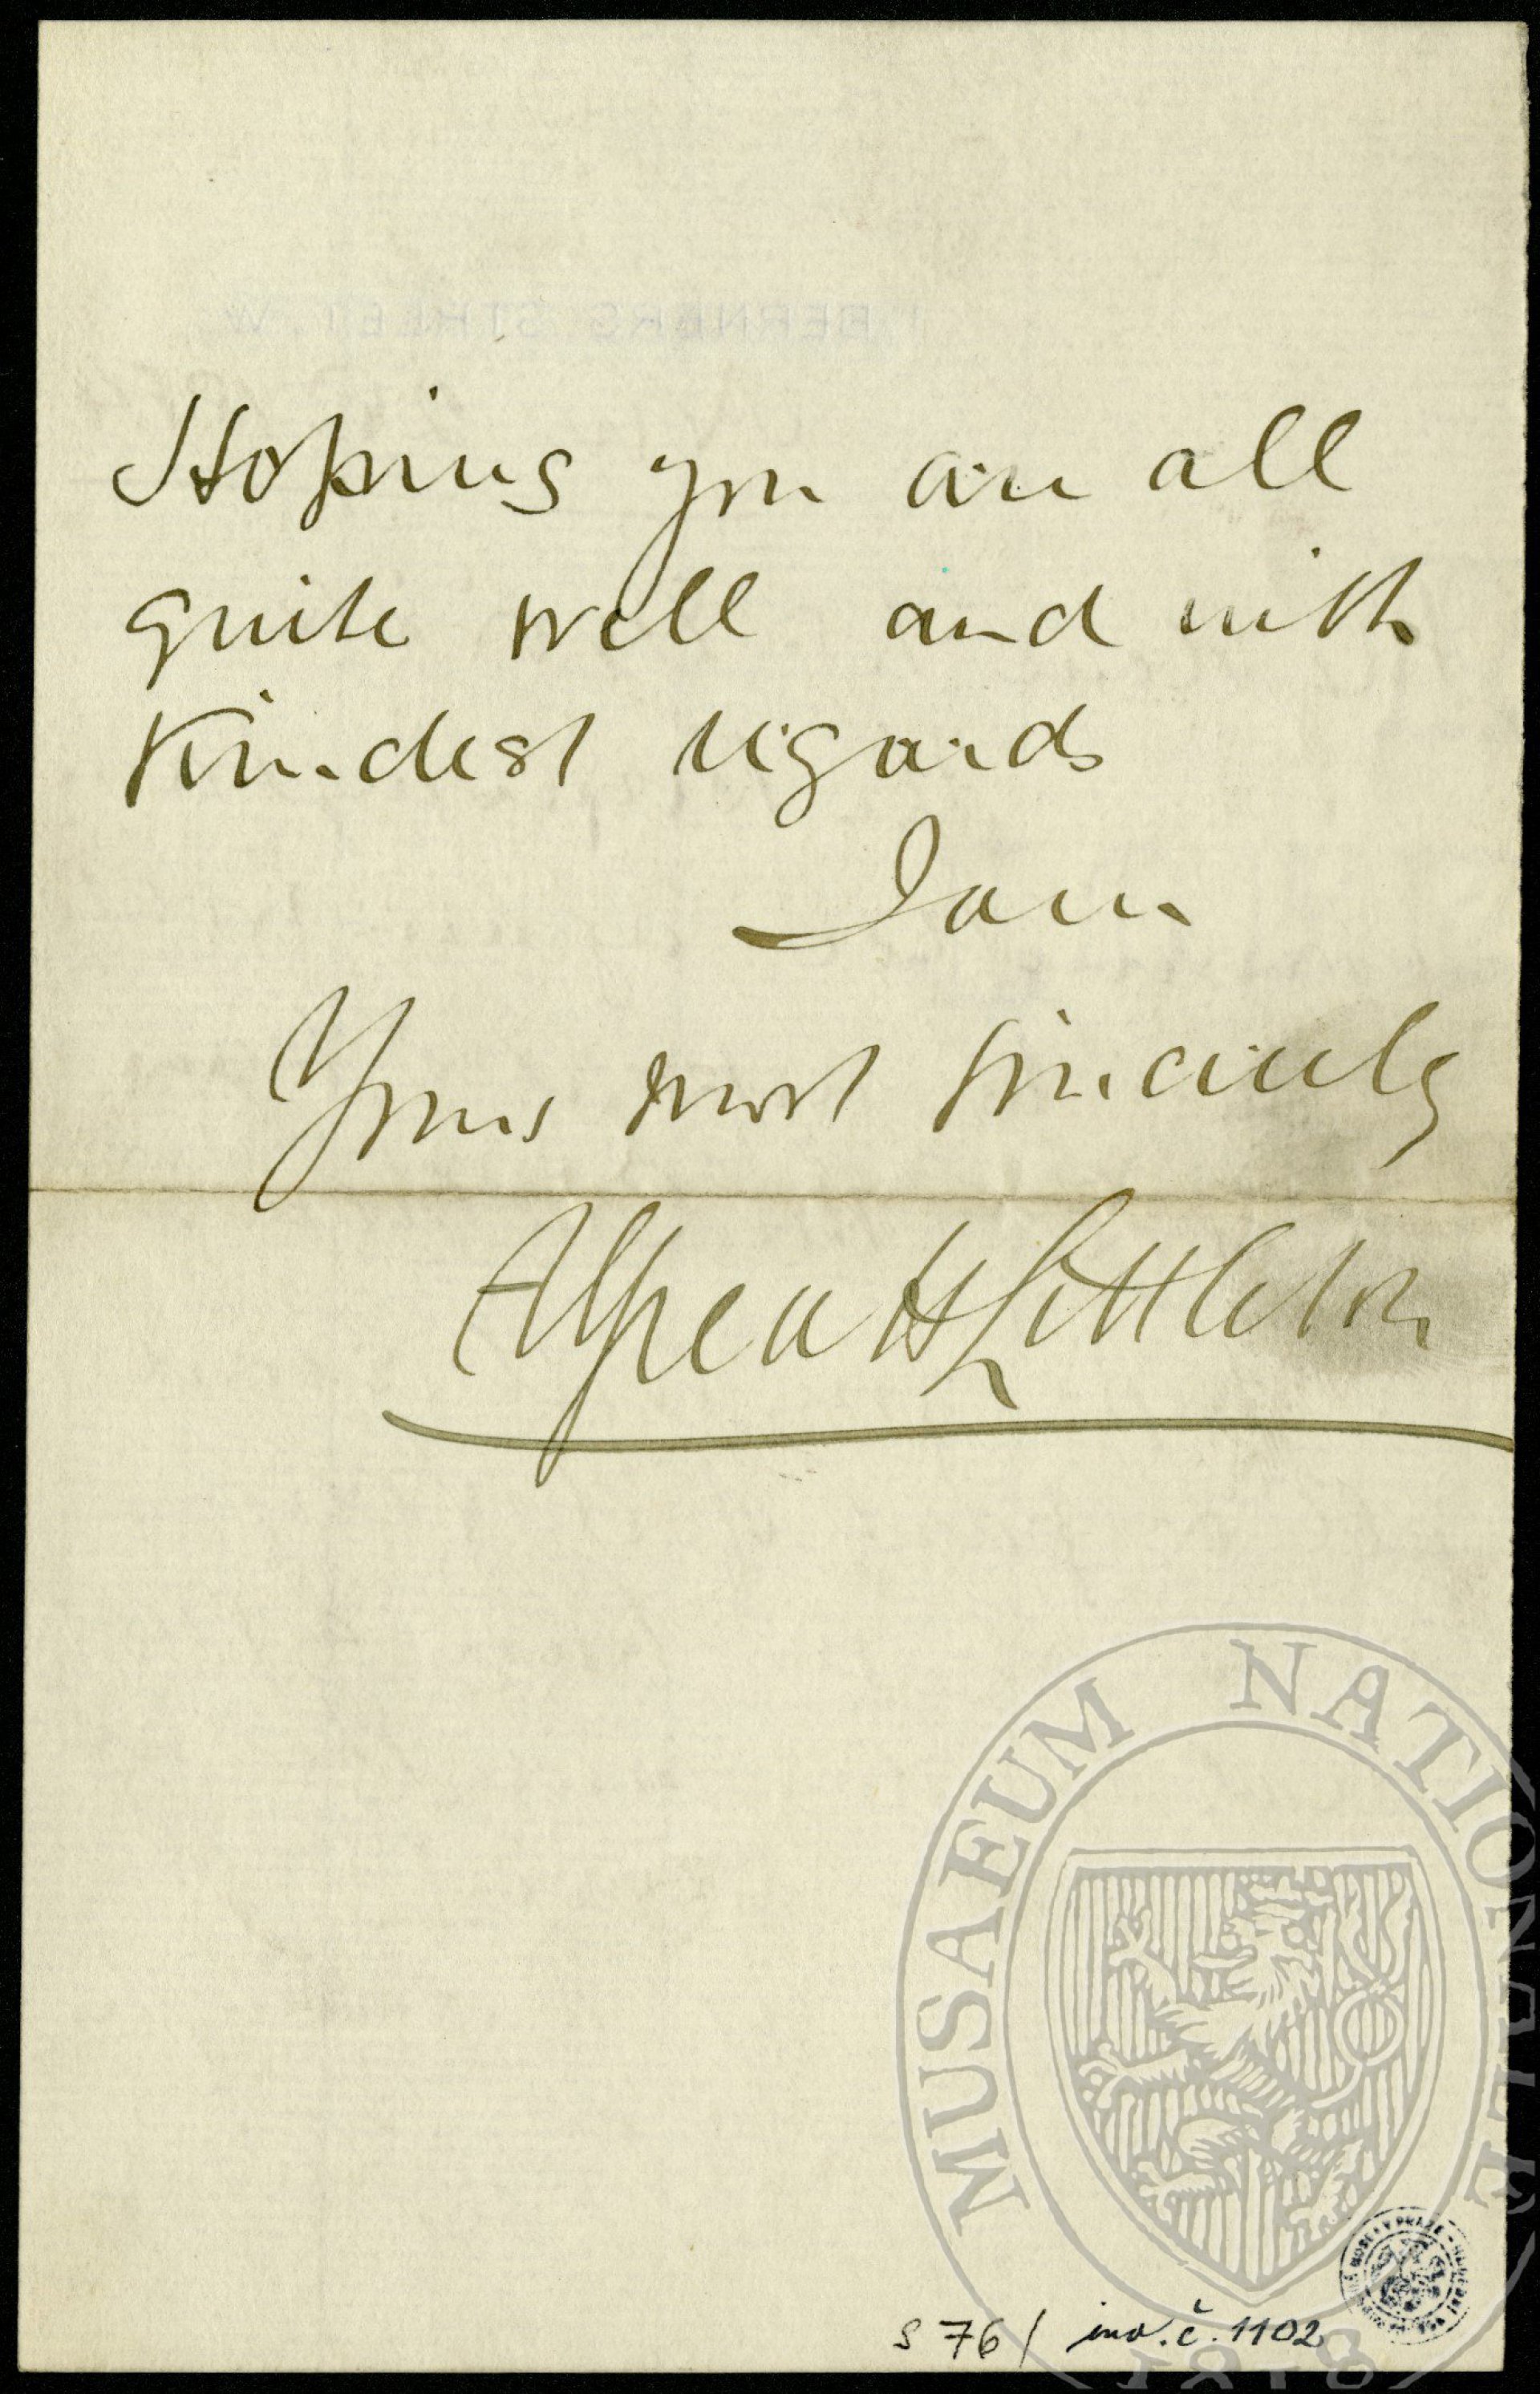 1 BERNERS STREET W
Hoping you are all
quite well and with
kindest regards
I am
Yours most sincerely
Alfred H Littleton
MUSAEUM NATIONALE
1818
S 76 / inv. č. 1102